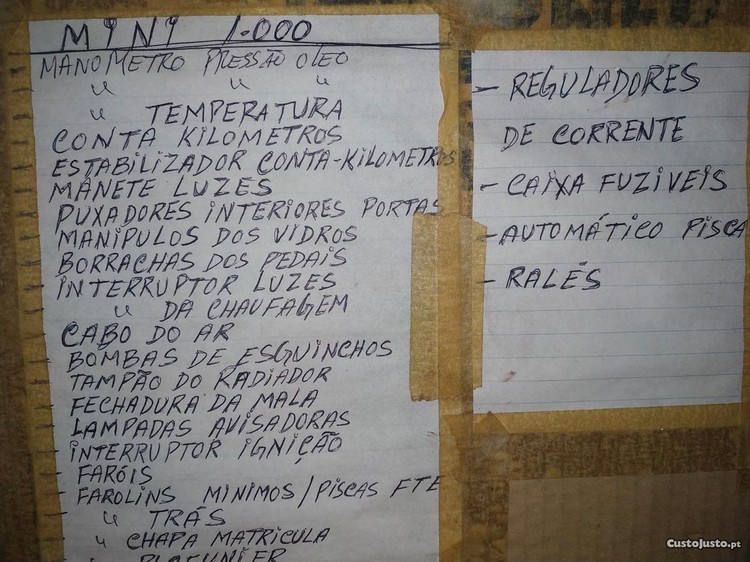 MINI 1.000
MANOMETRO PRESSÃO OLEO
" " "
" TEMPERATURA
CONTA KILOMETROS
ESTABILIZADOR CONTA-KILOMETROS
MANETE LUZES
PUXADORES INTERIORES PORTAS
MANIPULOS DOS VIDROS
BORRACHAS DOS PEDAIS
INTERRUPTOR LUZES
" DA CHAUFAGEM
CABO DO AR
BOMBAS DE ESGUINCHOS
TAMPÃO DO RADIADOR
FECHADURA DA MALA
LAMPADAS AVISADORAS
INTERRUPTOR IGNIÇÃO
- FARÓIS
FAROLINS MINIMOS / PISCAS FTE
" TRÁS
" CHAPA MATRICULA
- REGULADORES
DE CORRENTE
- CAIXA FUZIVEIS
- AUTOMÁTICO PISCA
- RALÉS
CustoJusto.pt